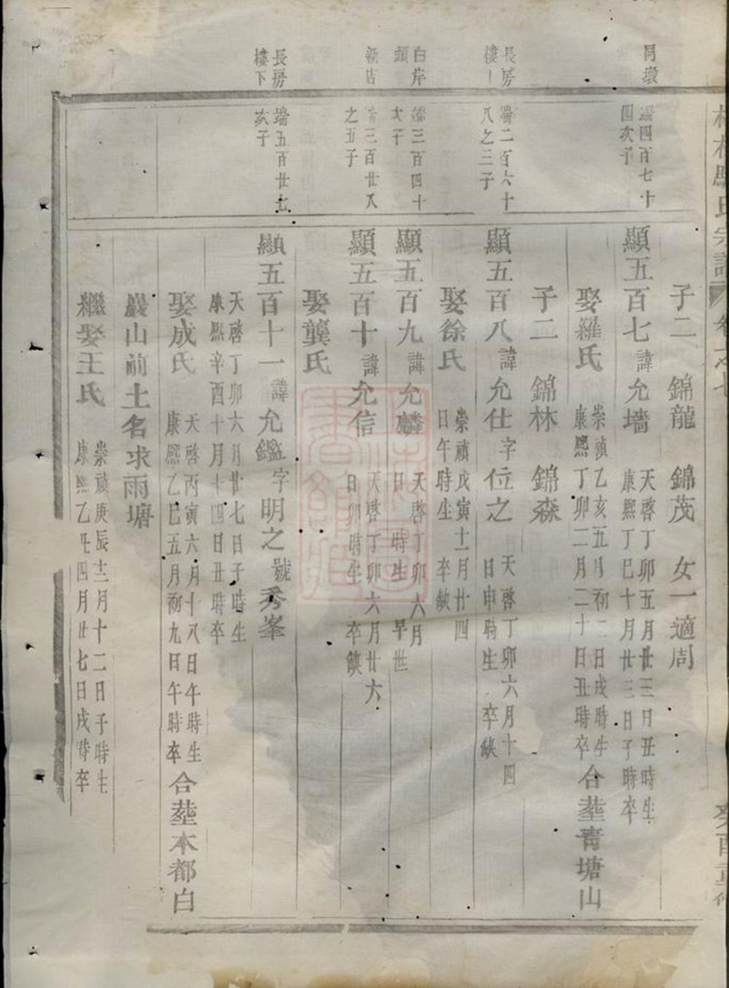 宗譜
子二 錦龍 錦茂 女一適周
同環
端四百七十四次子
顯五百七諱允墻 天啓丁卯五月廿三日丑時生 康熙丁巳十月廿三日子時卒
娶羅氏 崇禎乙亥五月初二日戌時生 康熙丁卯二月二十日丑時卒 合塟靑塘山
子二 錦林 錦森
長房樓
端二百六十八之三子
顯五百八諱允仕字位之 天啓丁卯六月十四日申時生 卒缺
娶徐氏 崇禎戊寅十一月廿四日午時生 卒缺
白岸頭
端三百四十次子
顯五百九諱允麟 天啓丁卯六月 日 時生 早世
新店
端三百廿八之五子
顯五百十諱允信 天啓丁卯六月廿六日卯時生 卒缺
娶龔氏
長房樓下
端五百廿七次子
顯五百十一諱允鑑字明之號秀峯
天啓丁卯六月廿七日子時生 康熙辛酉十月十四日丑時卒
娶成氏 天啓丙寅六月十八日午時生 康熙乙巳五月初九日午時卒 合塟本都白
巖山前土名求雨塘
繼娶王氏 崇禎庚辰十二月十二日子時生 康熙乙丑四月廿七日戌時卒